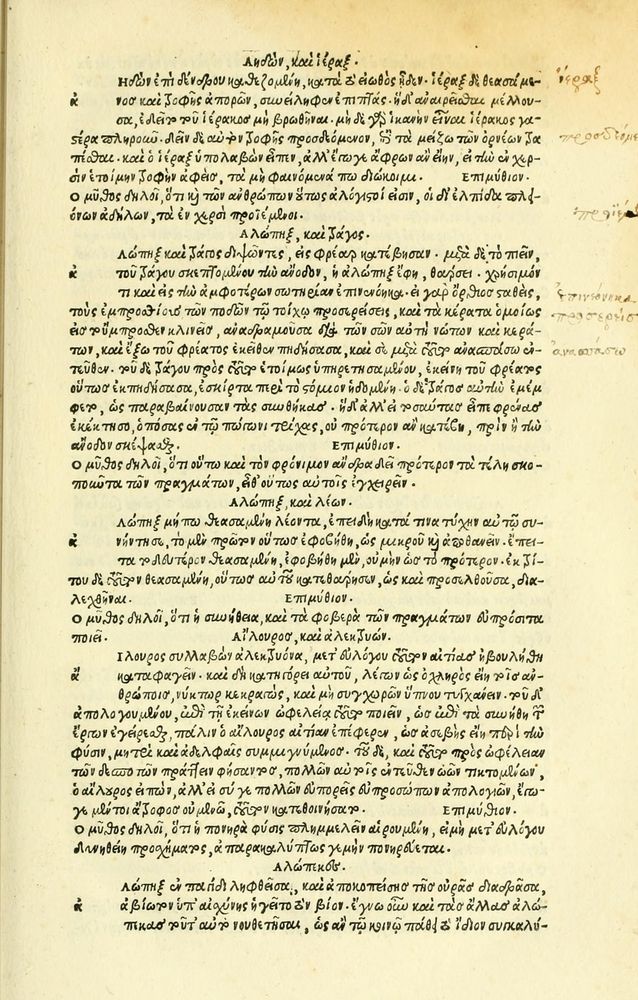 Ἀηδὼν, καὶ ἱέραξ.
Ηδὼν ἐπὶ δένδρου καθεζομένη, κατὰ τὸ εἰωθὸς ᾖδεν. ἱέραξ δὲ θεασάμε-
νος καὶ τροφῆς ἀπορῶν, συνείληφεν ἐπιπτάς. ἡ δὲ ἀναιρεῖσθαι μέλλου-
σα, ἐδεῖτο τοῦ ἱέρακος μὴ βρωθῆναι. μὴ δὲ γὰρ ἱκανὴν εἶναι ἱέρακος γα-
στέρα πληροῦν. δεῖν δὲ αὐτὸν τροφῆς προσδεόμενον, ἐπὶ τὰ μείζω τῶν ὀρνέων τρα
πέσθαι. καὶ ὁ ἱέραξ ὑπολαβὼν εἶπεν, ἀλλ' ἔγωγε ἄφρων ἂν εἴην, εἰ τὴν ἐν χερ-
σὶν ἑτοίμην τροφὴν ἀφεὶς, τὰ μὴ φαινόμενά πω διώκοιμι. Ἐπιμύθιον.
Ο μῦθος δηλοῖ, ὅτι καὶ τῶν ἀνθρώπων οὕτως ἀλόγιστοί εἰσιν, οἱ δι' ἐλπίδα πλει-
όνων ἀδήλων, τὰ ἐν χερσὶ προϊέμενοι.
Ἀλώπηξ, καὶ τράγος.
Λώπηξ καὶ τράγος διψῶντες, εἰς φρέαρ κατέβησαν. μετὰ δὲ τὸ πιεῖν,
τοῦ τράγου σκεπτομένου τὴν ἄνοδον, ἡ ἀλώπηξ ἔφη, θάρσει. χρήσιμόν
τι καὶ εἰς τὴν ἀμφοτέρων σωτηρίαν ἐπινενόηκα. εἰ γὰρ ὄρθιος σταθεὶς,
τοὺς ἐμπροσθίους τῶν ποδῶν τῷ τοίχῳ προσερείσεις, καὶ τὰ κέρατα ὁμοίως
εἰς τοὔμπροσθεν κλινεῖς, ἀναδραμοῦσα διὰ τῶν σῶν αὐτὴ νώτων καὶ κερά-
των, καὶ ἔξω τοῦ φρέατος ἐκεῖθεν πηδήσασα, καὶ σὲ μετὰ τοῦτο ἀνασπάσω ἐν-
τεῦθεν. τοῦ δὲ τράγου πρὸς τοῦτο ἑτοίμως ὑπηρετησαμένου, ἐκείνη τοῦ φρέατος
οὕτως ἐκπηδήσασα, ἐσκίρτα περὶ τὸ στόμιον ἡδομένη. ὁ δὲ τράγος αὐτὴν ἐμέμ
φετο, ὡς παραβαίνουσαν τὰς συνθήκας. ἡ δὲ ἀλλ' εἰ τοσαύτας εἶπε φρένας
ἐκέκτησο, ὁπόσας ἐν τῷ πώγωνι τρίχας, οὐ πρότερον ἂν κατέβης, πρὶν ἢ τὴν
ἄνοδον σκέψασθαι. Ἐπιμύθιον.
Ο μῦθος δηλοῖ, ὅτι οὕτω καὶ τὸν φρόνιμον ἄνδρα δεῖ πρότερον τὰ τέλη σκο-
ποῦντα τῶν πραγμάτων, εἶθ' οὕτως αὐτοῖς ἐγχειρεῖν.
Ἀλώπηξ, καὶ λέων.
Λώπηξ μήπω θεασαμένη λέοντα, ἐπειδὴ κατά τινα τύχην αὐτῷ συ-
νήντησε, τὸ μὲν πρῶτον οὕτως ἐφοβήθη, ὡς μικροῦ καὶ ἀποθανεῖν. ἔπει-
τα τὸ δεύτερον θεασαμένη, ἐφοβήθη μὲν, οὐ μὴν ὡς τὸ πρότερον. ἐκ τρί-
του δὲ τοῦτον θεασαμένη, οὕτως αὐτοῦ κατεθάρρησεν, ὡς καὶ προσελθοῦσα, δια-
λεχθῆναι. Ἐπιμύθιον.
Ο μῦθος δηλοῖ, ὅτι ἡ συνήθεια, καὶ τὰ φοβερὰ τῶν πραγμάτων εὐπρόσιτα
ποιεῖ. Αἴλουρος, καὶ ἀλεκτρυών.
Ιλουρος συλλαβὼν ἀλεκτρυόνα, μετ' εὐλόγου τοῦτον αἰτίας ἠβουλήθη
καταφαγεῖν. καὶ δὴ κατηγόρει αὐτοῦ, λέγων ὡς ὀχληρὸς εἴη τοῖς ἀν-
θρώποις, νύκτωρ κεκραγὼς, καὶ μὴ συγχωρῶν ὕπνου τυγχάνειν. τοῦ δὲ
ἀπολογουμένου, ἐπὶ τῇ ἐκείνων ὠφελείᾳ τοῦτο ποιεῖν, ὡς ἐπὶ τὰ συνήθη τῶν
ἔργων ἐγείρεσθαι, πάλιν ὁ αἴλουρος αἰτίαν ἐπέφερεν, ὡς ἀσεβὴς εἴη περὶ τὴν
φύσιν, μητρὶ καὶ ἀδελφαῖς συμμιγνύμενος. τοῦ δὲ, καὶ τοῦτο πρὸς ὠφέλειαν
τῶν δεσποτῶν πράττειν φήσαντος, πολλῶν αὐτοῖς ἐντεῦθεν ὠῶν τικτομένων,
ὁ αἴλουρος εἰπὼν, ἀλλ' εἰ σύ γε πολλῶν εὐπορεῖς εὐπροσώπων ἀπολογιῶν, ἔγω-
γε μέντοι ἄτροφος οὐ μενῶ, τοῦτον κατεθοινήσατο. Ἐπιμύθιον.
Ο μῦθος δηλοῖ, ὅτι ἡ πονηρὰ φύσις πλημμελεῖν αἱρουμένη, εἰ μὴ μετ' εὐλόγου
δυνηθείη προσχήματος, ἀπαρακαλύπτως γε μὴν πονηρεύεται.
Ἀλώπεκος.
Λώπηξ ἐν παγίδι ληφθεῖσα, καὶ ἀποκοπείσης τῆς οὐρᾶς διαδρᾶσα,
ἀβίωτον ὑπ' αἰσχύνης ἡγεῖτο τὸν βίον. ἔγνω οὖν καὶ τὰς ἄλλας ἀλώ-
πεκας τοῦτ' αὐτὸ νουθετῆσαι, ὡς ἂν τῷ κοινῷ πάθει τὸ ἴδιον συγκαλύ-
ἱέραξ